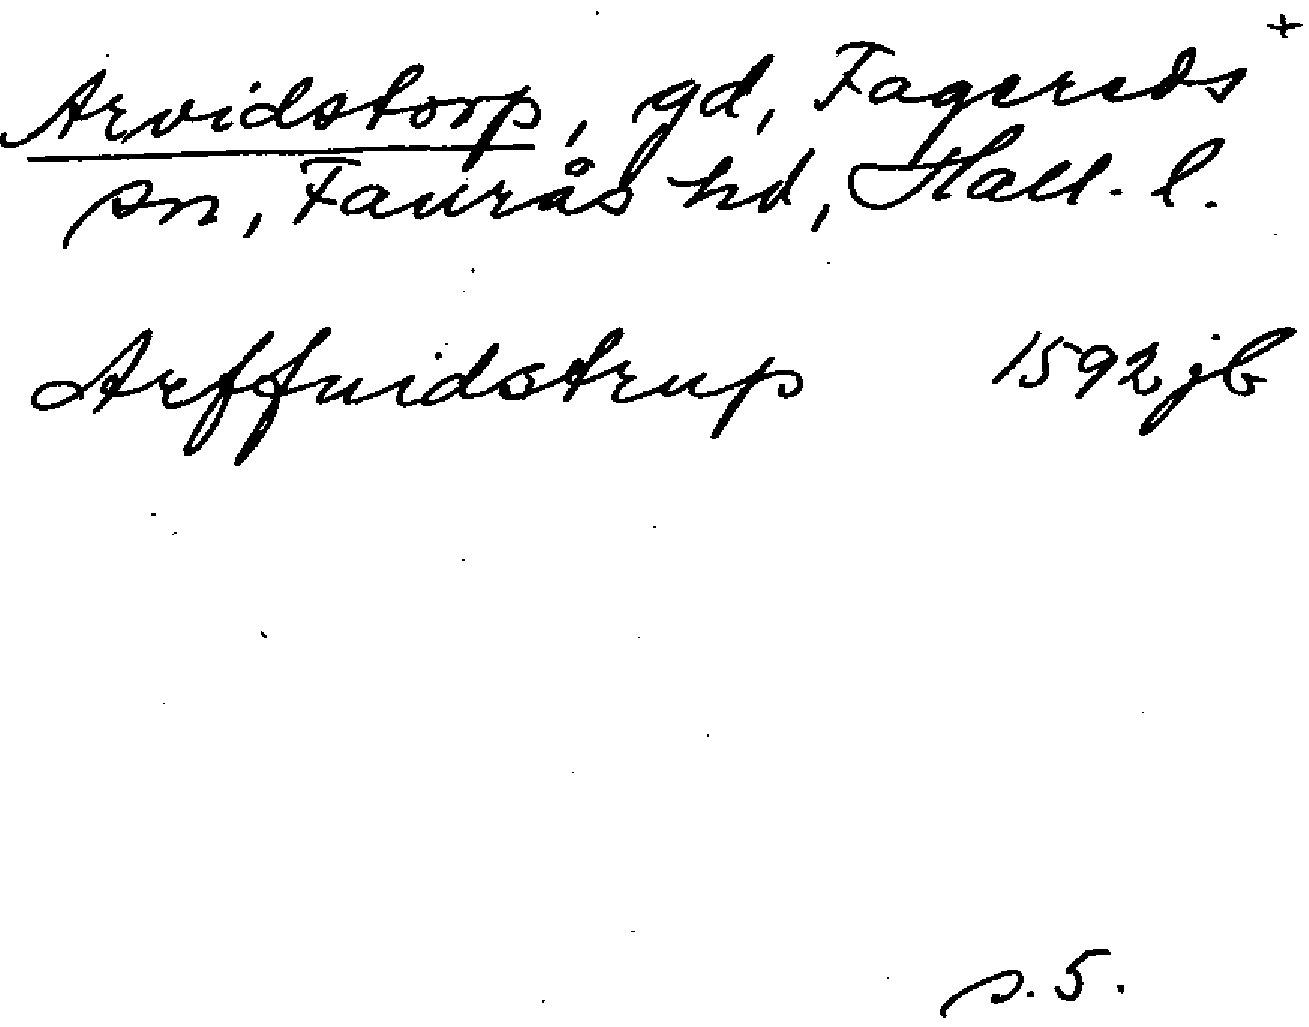 +
Arvidstorp, gd, Fagereds
sn, Faurås hd, Hall. l.
Arffuidstrup 1592 jb
s. 5.